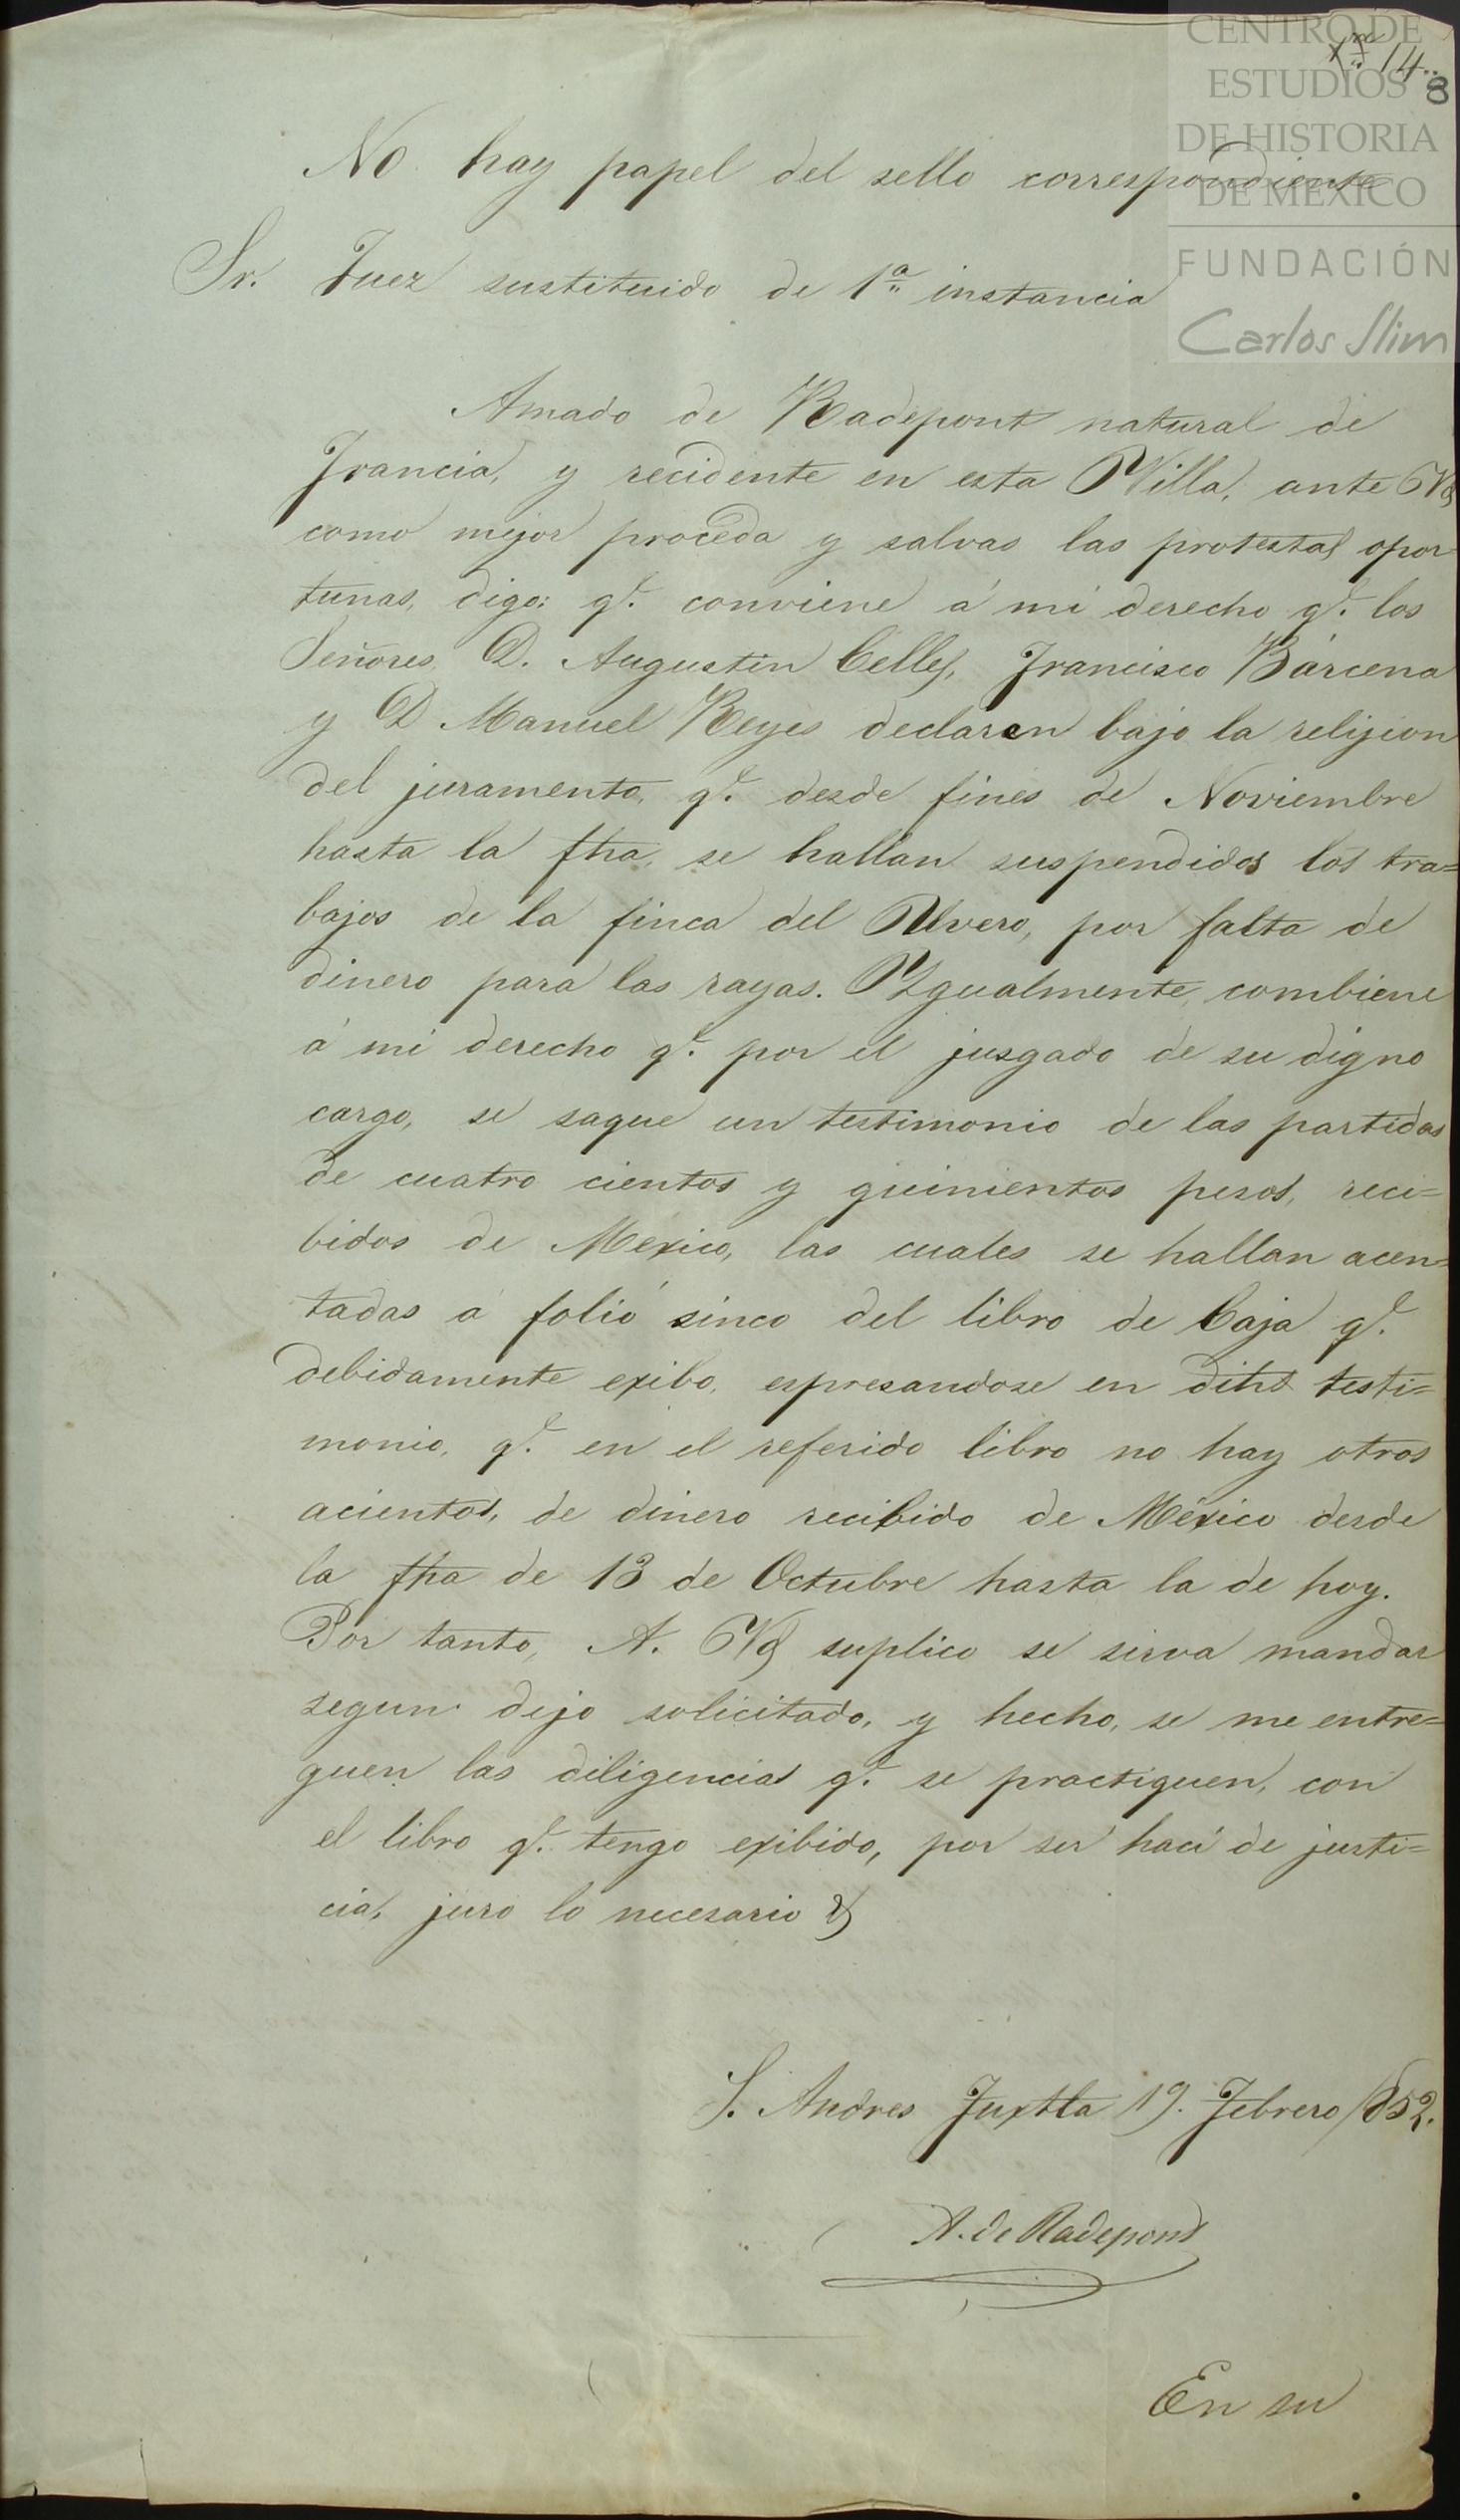 CENTRO DE
ESTUDIOS
DE HISTORIA
DE MÉXICO
FUNDACIÓN
Carlos Slim
14
8
No hay papel del sello correspondiente
Sr. Juez sustituido de 1ª instancia
Amado de Radepont natural de
Francia, y recidente en esta Villa, ante Vd
como mejor proceda y salvas las protestas opor-
tunas, digo: qe. conviene á mi derecho qe. los
Señores D. Augustin Celly, Francisco Bárcena
y D Manuel Reyes declaren bajo la relijion
del juramento, qe. desde fines de Noviembre
hasta la fha, se hallan suspendidos los tra=
bajos de la finca del Uvero, por falta de
dinero para las rayas. Ygualmente combiene
á mi derecho qe. por el jusgado de su digno
cargo, se saque un testimonio de las partidas
de cuatro cientos y quinientos pesos, reci=
bidos de Mexico, las cuales se hallan acen=
tadas á folio sinco del libro de Caja qe.
debidamente exibo, espresandose en diho testi=
monio, qe. en el referido libro no hay otros
acientos, de dinero recibido de México desde
la fha de 13 de Octubre hasta la de hoy.
Por tanto, A. Vd suplico se sirva mandar
segun dejo solicitado, y hecho, se me entre=
guen las diligencias qe. se practiquen, con
el libro qe. tengo exibido, por ser haci de justi=
cia, juro lo necesario &
S. Andres Tuxtla 19. Febrero /852.
A. de Radepont
En su